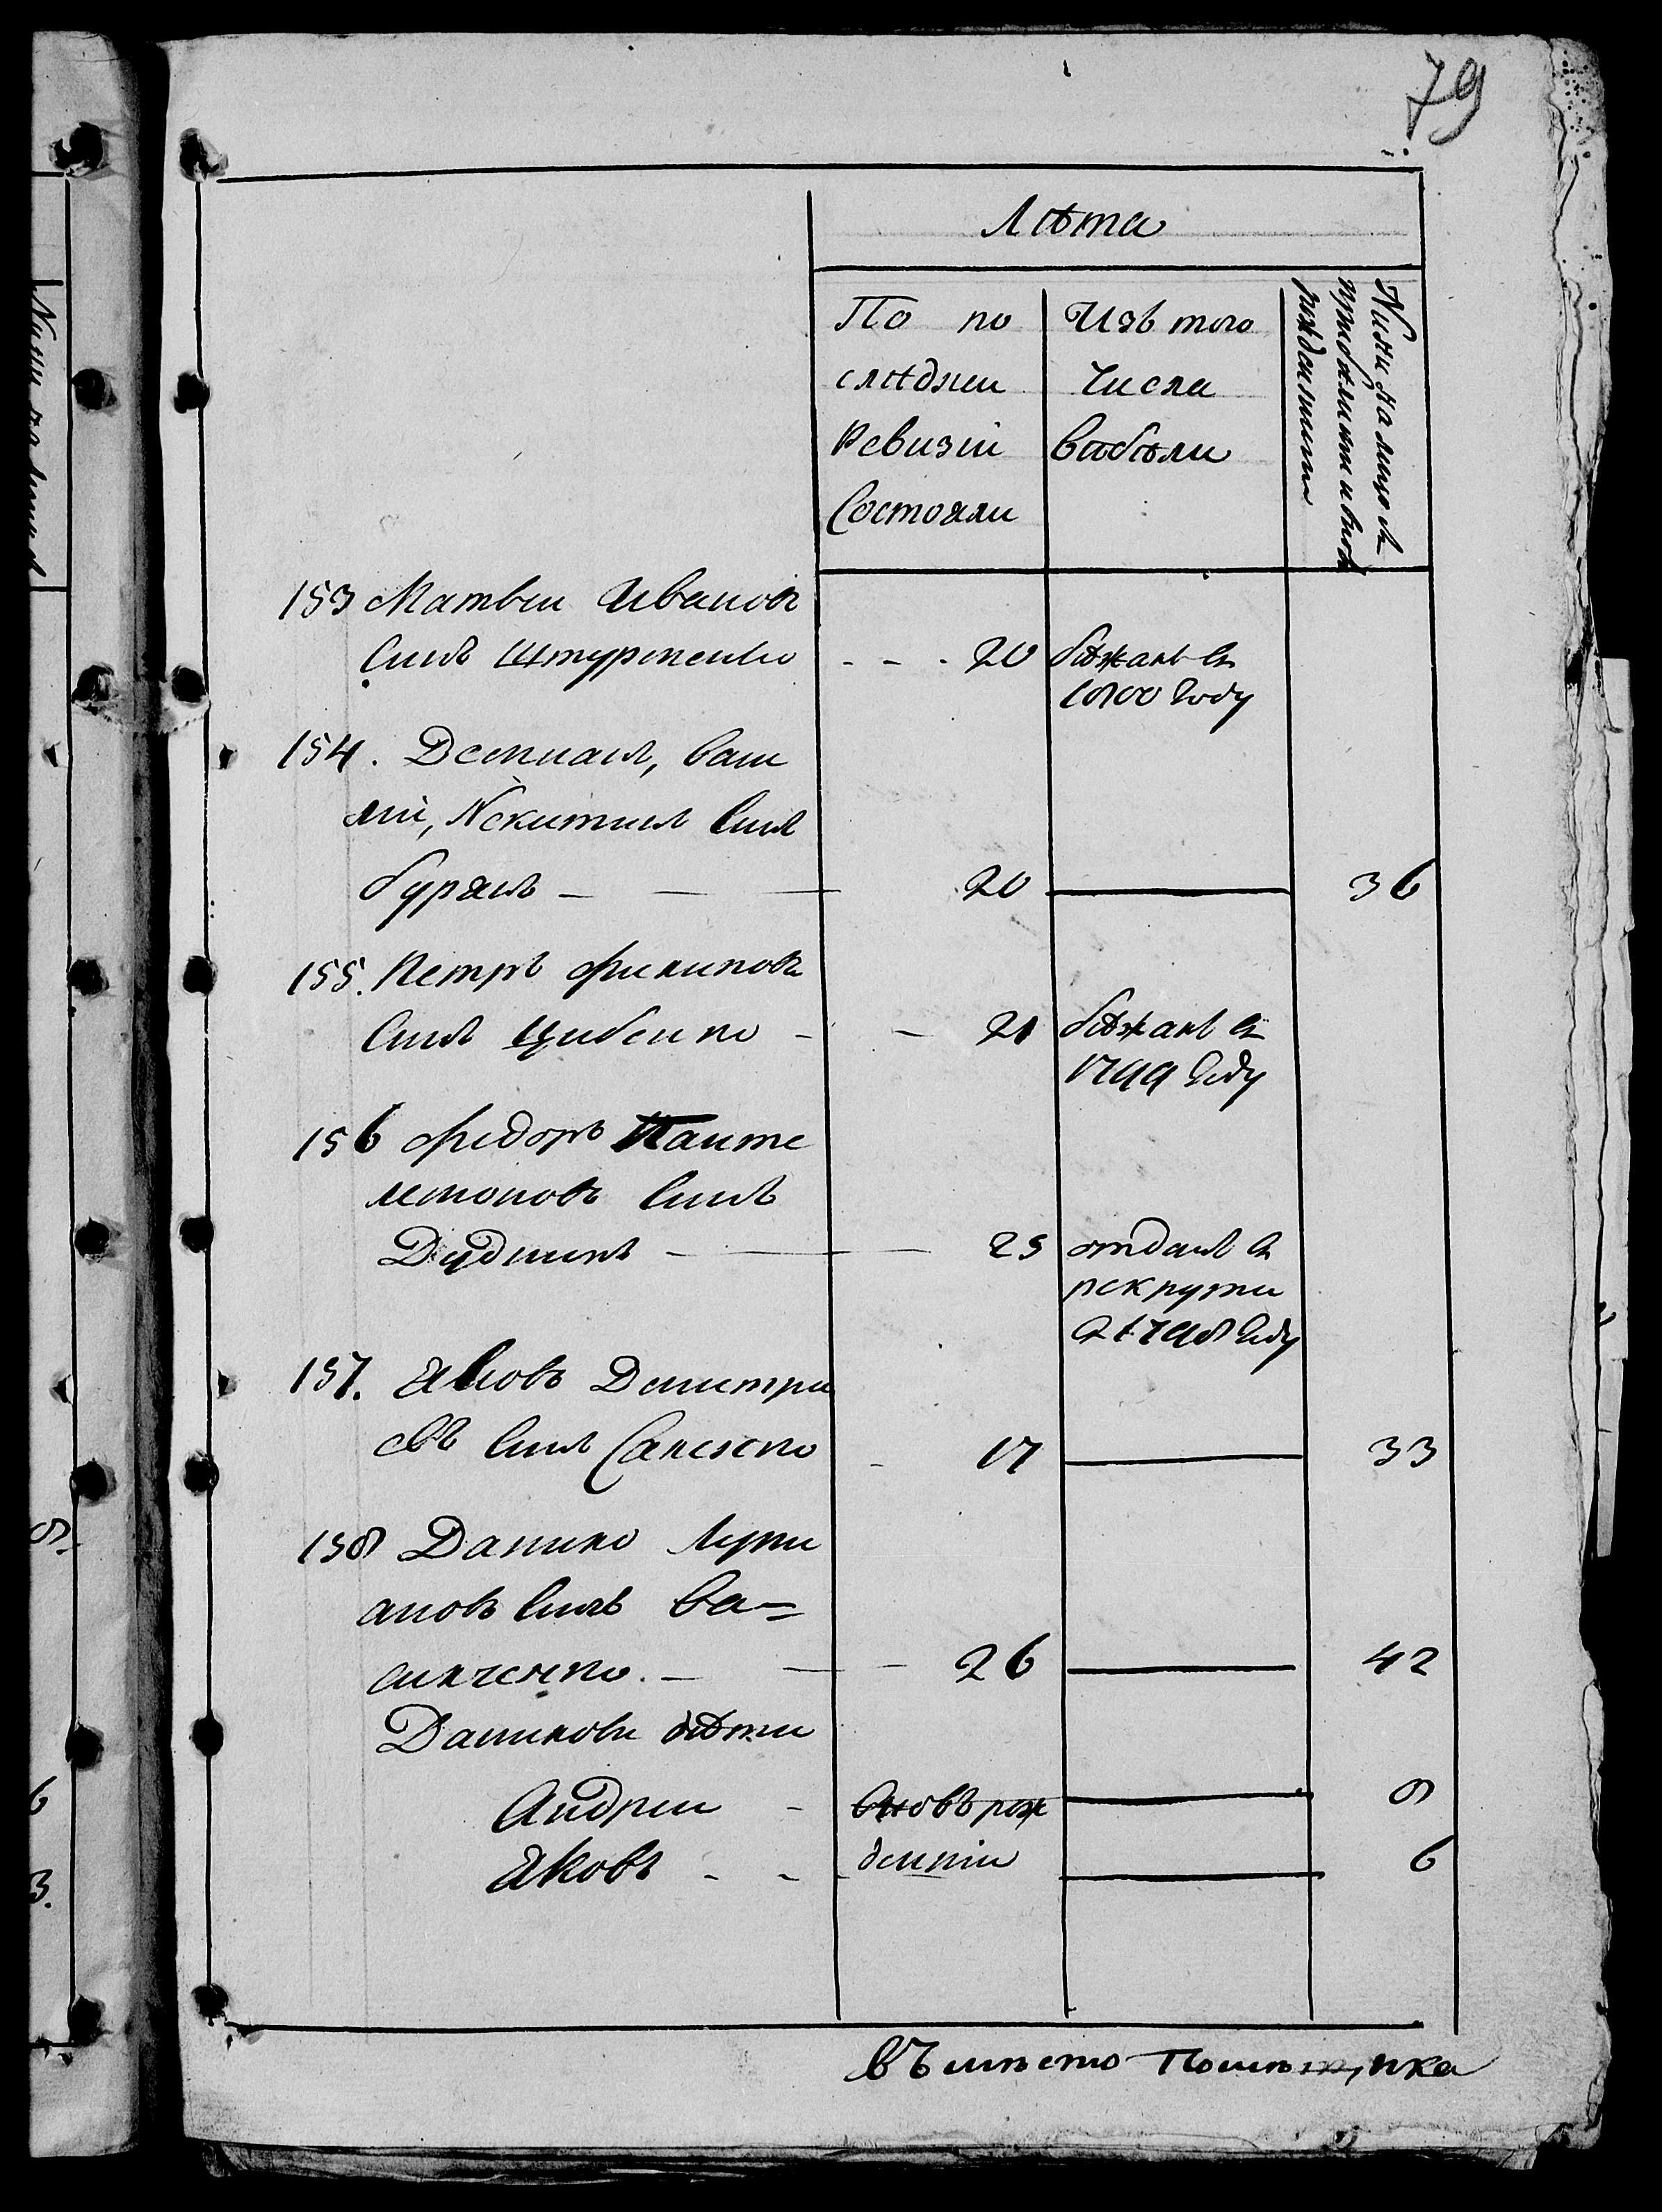 79
Лѣта
По по
слѣдней
Ревизіи
Состояли
Изъ того
Числа
выбыли
Нинѣ на лицо съ
прибылими и вновь
рожденними
153 Матвѣй Ивановъ
синъ Штурпенко - - - 20 бѣжалъ въ
1800 году
154. Демианъ, васи
лій, Никитинъ синъ
бурякъ - 20 36
155. Петръ Филиповъ
синъ Цибенко - - 21 бѣжалъ въ
1799 году
156 Федоръ Панте
леймоновъ синъ
Дудникъ - 25 отданъ въ
рекрути
въ 1798 году
157. Яковъ Дмитри
евъ синъ - 17 33
158 Данило Лукі
яновъ синъ Ва=
силченко. - 26 42
Данилови дѣти
Андрей - вновь рож 8
Яковъ - - денніи 6
въмѣсто Помѣщика